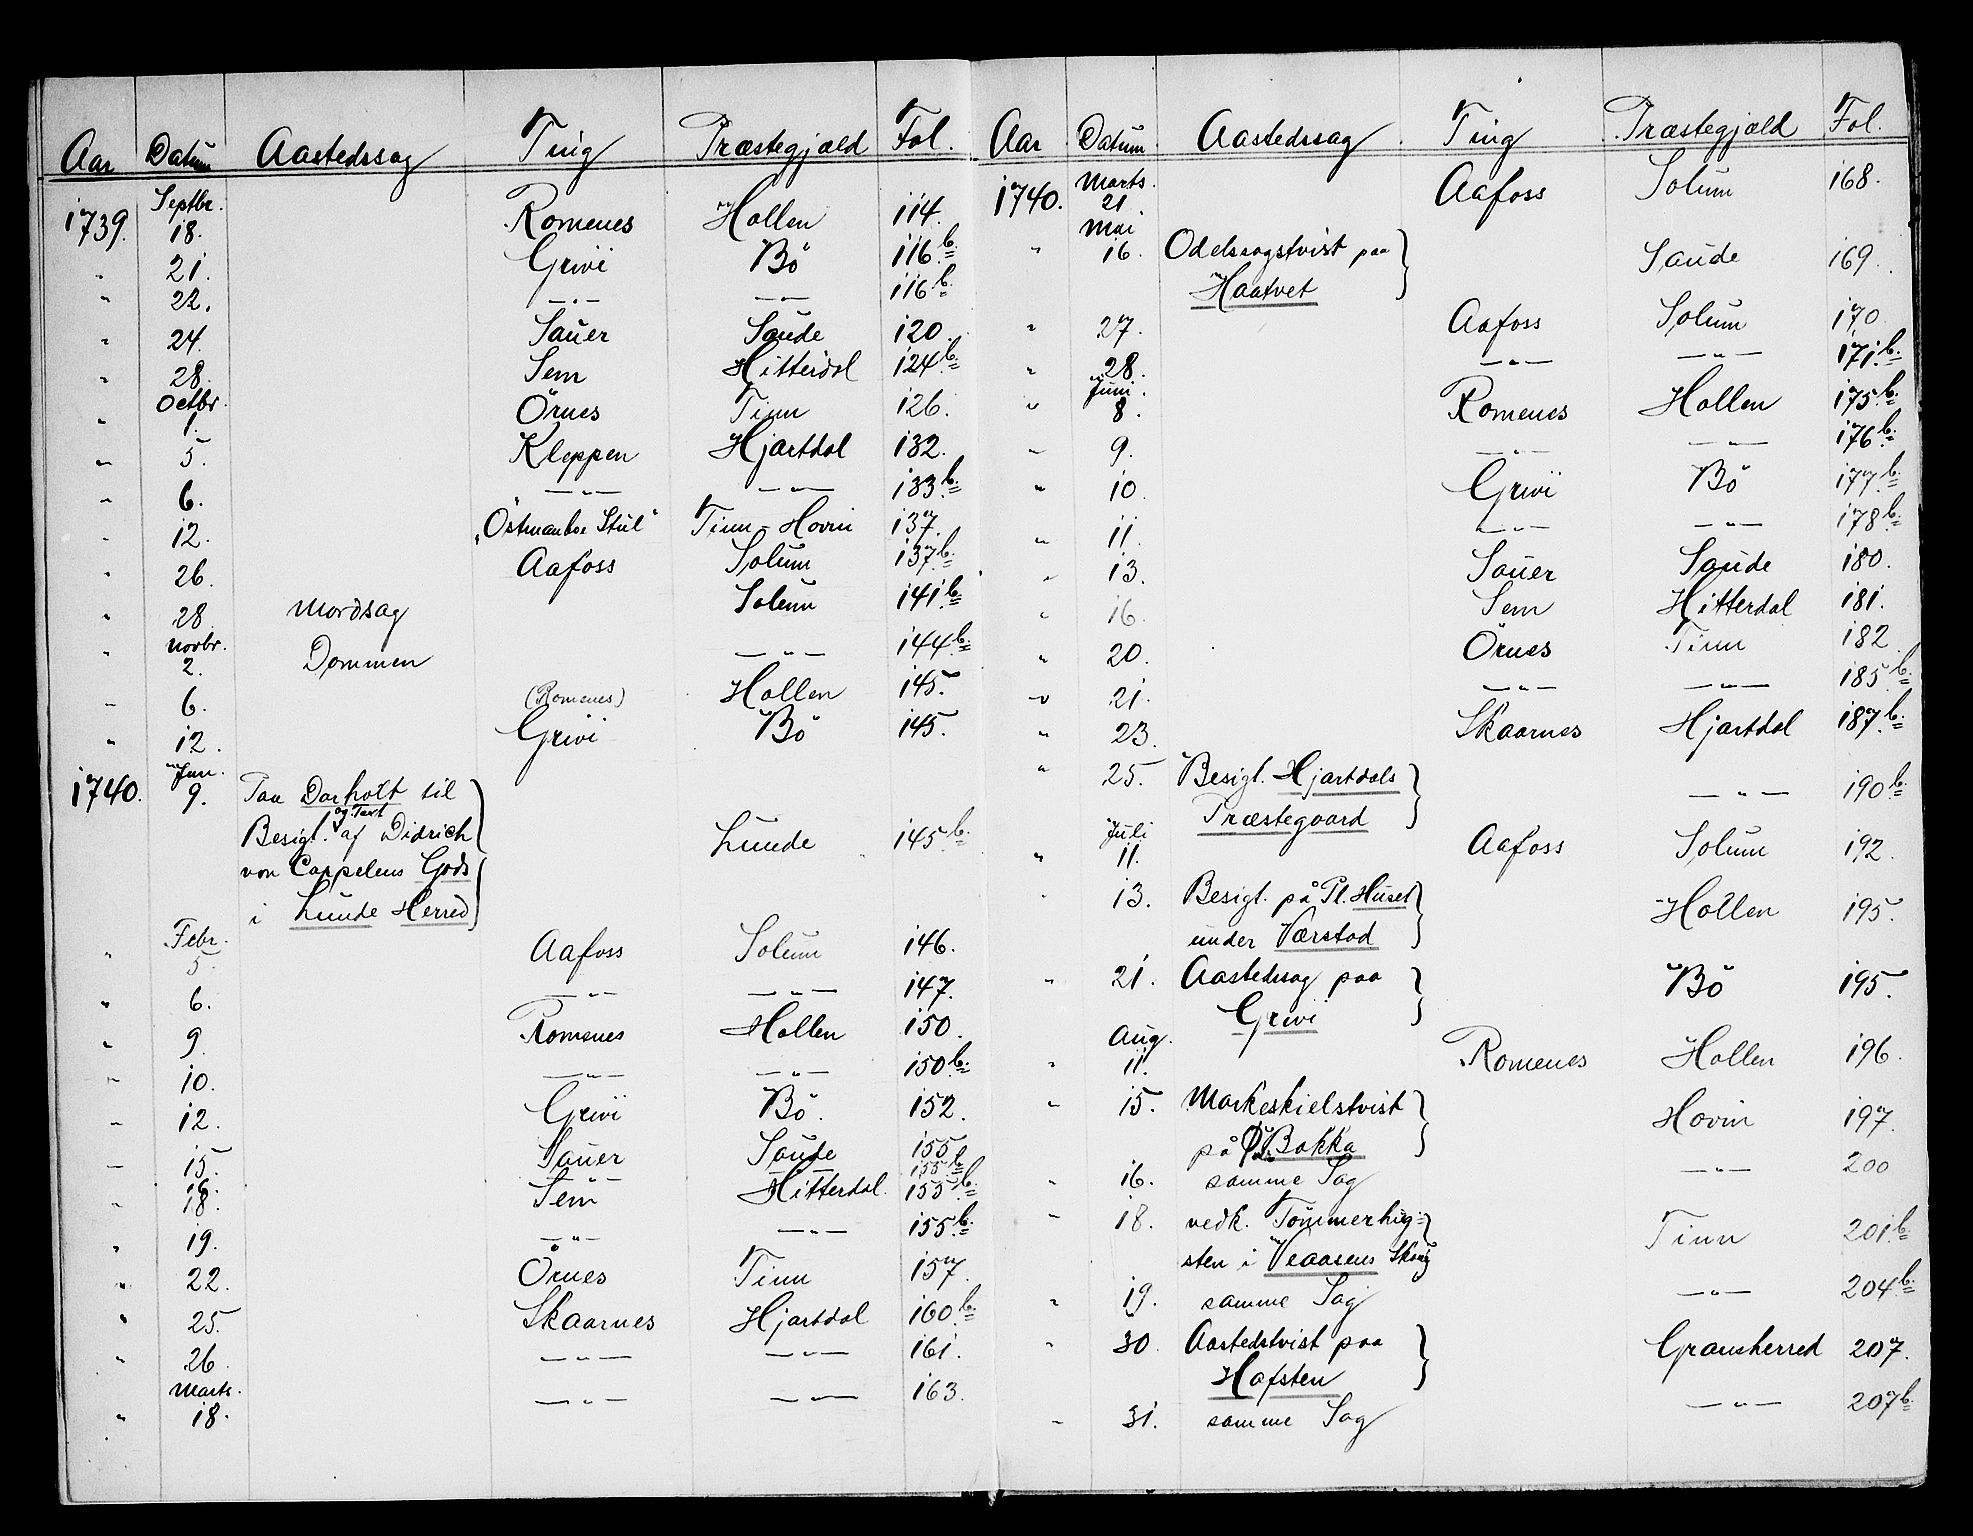 Aar Datum Aastedssag Ting Præstegjæld Fol.
Septbr.
1739. 18. Romenes Hollen 114.
" 21. Grivi Bö 116 b.
" 22. —"— —"— 116 b.
" 24. Sauer Saude 120.
" 28. Sem Hitterdal 124 b.
Octbr.
" 1. Örnes Tinn 126.
" 5. Kleppen Hjartdal 132.
" 6. —"— —"— 133 b.
" 12. Tinn - Hovin 137.
" 26. Aafoss Solum 137 b.
" 28. Mordsag Solum 141 b.
Novbr.
" 2. Dommen —"— 144 b.
" 6. (Romenes) Hollen 145.
" 12. Grivi Bö 145.
Jan.
1740. 9. Paa Dorholt til
og Taxt
Besigt. af Didrich
Lunde 145 b.
von Cappelens Gods
i Lunde Herred
Febr.
" 5. Aafoss Solum 146.
" 6. —"— —"— 147.
" 9. Romenes Hollen 150.
" 10. —"— —"— 150 b.
" 12. Grivi Bö. 152.
" 15. Sauer Saude 155
16. — — 155 b.
" 18. Sem Hitterdal. 155 b.
" 19. —"— —"— 155 b.
" 22. Örnes Tinn 157.
" 25. Skaarnes Hjartdal 160 b.
" 26. —"— —"— 161.
Marts.
" 18. —"— —"— 163.
Aar Datum Aastedssag Ting Præstegjæld Fol.
Marts.
1740. 21. Aafoss Solum 168.
Mai
" 16. Odelssagstvist paa
Haatvet Saude 169.
" 27. Aafoss Solum 170
" 28. —"— —"— 171 b.
Juni.
" 8. Romenes Hollen 175 b.
" 9. —"— —"— 176 b.
" 10. Grivi Bö 177 b.
" 11. —"— —"— 178 b.
" 13. Sauer Saude 180.
" 16. Sem Hitterdal 181.
" 20. Örnes Tinn 182
" 21. —"— —"— 185 b.
" 23. Skaarnes Hjartdal 187 b.
" 25. Besigt. Hjartdals
Præstegaard —"— 190 b.
Juli
" 11. Aafoss Solum 192.
" 13. Besigt. på Pl. Huset
under Værstad Hollen 195.
" 21. Aastedssag paa
Grivi Bö 195.
Aug.
" 11. Romenes Hollen 196.
" 15. Markeskielstvist
på Bakka Hovin 197.
" 16. samme Sag —"— 200
" 18. vedk. Tömmerhug-
sten i Veaasens Skoug Tinn 201 b.
" 19. samme Sag —"— 204 b.
" 30. Aastedstvist paa
Hafsten Gransherred 207.
" 31. samme Sag —"— 207 b.